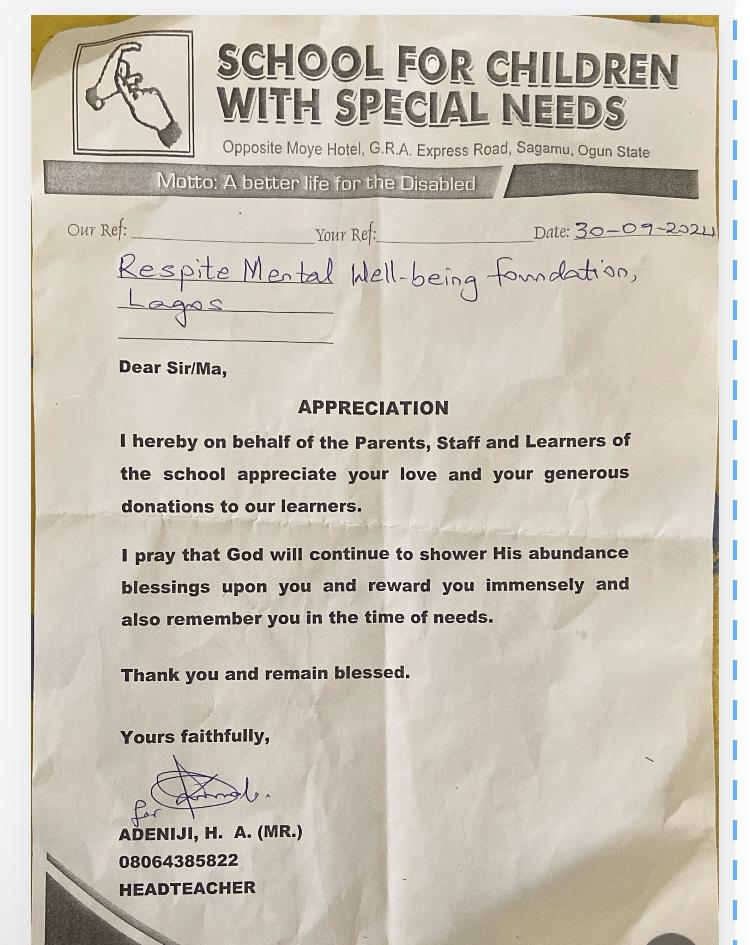 SCHOOL FOR CHILDREN
WITH SPECIAL NEEDS
Opposite Moye Hotel, G.R.A. Express Road, Sagamu, Ogun State
Motto: A better life for the Disabled
Our Ref: Your Ref: Date: 30-09-2024
Respite Mental Well-being foundation,
Lagos
Dear Sir/Ma,
APPRECIATION
I hereby on behalf of the Parents, Staff and Learners of
the school appreciate your love and your generous
donations to our learners.
I pray that God will continue to shower His abundance
blessings upon you and reward you immensely and
also remember you in the time of needs.
Thank you and remain blessed.
Yours faithfully,
for
ADENIJI, H. A. (MR.)
08064385822
HEADTEACHER